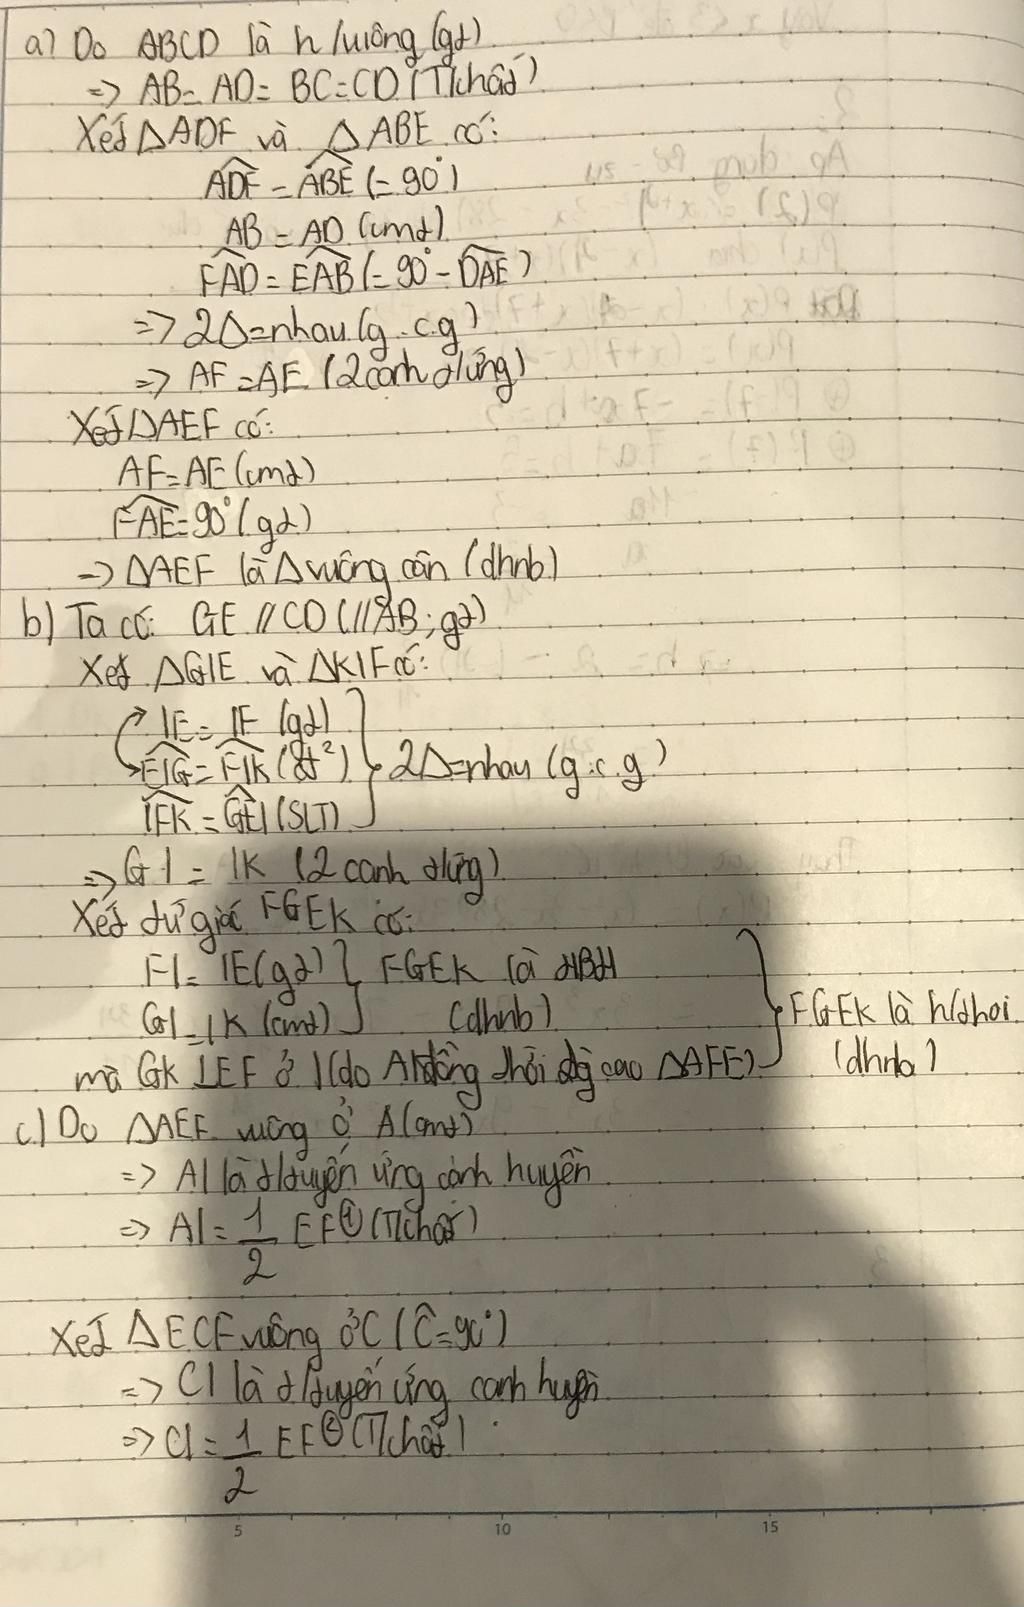 a) Do ABCD là h/uông (gt)
=> AB = AD = BC = CD (T/chất)
Xét ΔADF và ΔABE có:
ADF = ABE (= 90°)
AB = AD (cmt)
FAD = EAB (= 90° - DAE)
=> 2Δ = nhau (g.c.g)
=> AF = AE (2 cạnh t/ứng)
Xét ΔAEF có:
AF = AE (cmt)
FAE = 90° (gt)
=> ΔAEF là Δ vuông cân (dhnb)
b) Ta có: GE // CD (//AB; gt)
Xét ΔGIE và ΔKIF có:
IE = IF (gt)
EIG = FIK (đ²) 2Δ = nhau (g.c.g)
IFK = GEI (SLT)
=> GI = IK (2 cạnh t/ứng)
Xét tứ giác FGEK có:
FI = IE (gt) FGEK là HBH
GI = IK (cmt) (dhnb) FGEK là h/thoi
mà GK ⊥ EF ở I (do AI đồng thời đg cao ΔAFE) (dhnb)
c) Do ΔAEF vuông ở A (cmt)
=> AI là t/tuyến ứng cạnh huyền
=> AI = 1/2 EF ① (T/chất)
Xét ΔECF vuông ở C (C = 90°)
=> CI là t/tuyến ứng cạnh huyền
=> CI = 1/2 EF ② (T/chất)
5 10 15